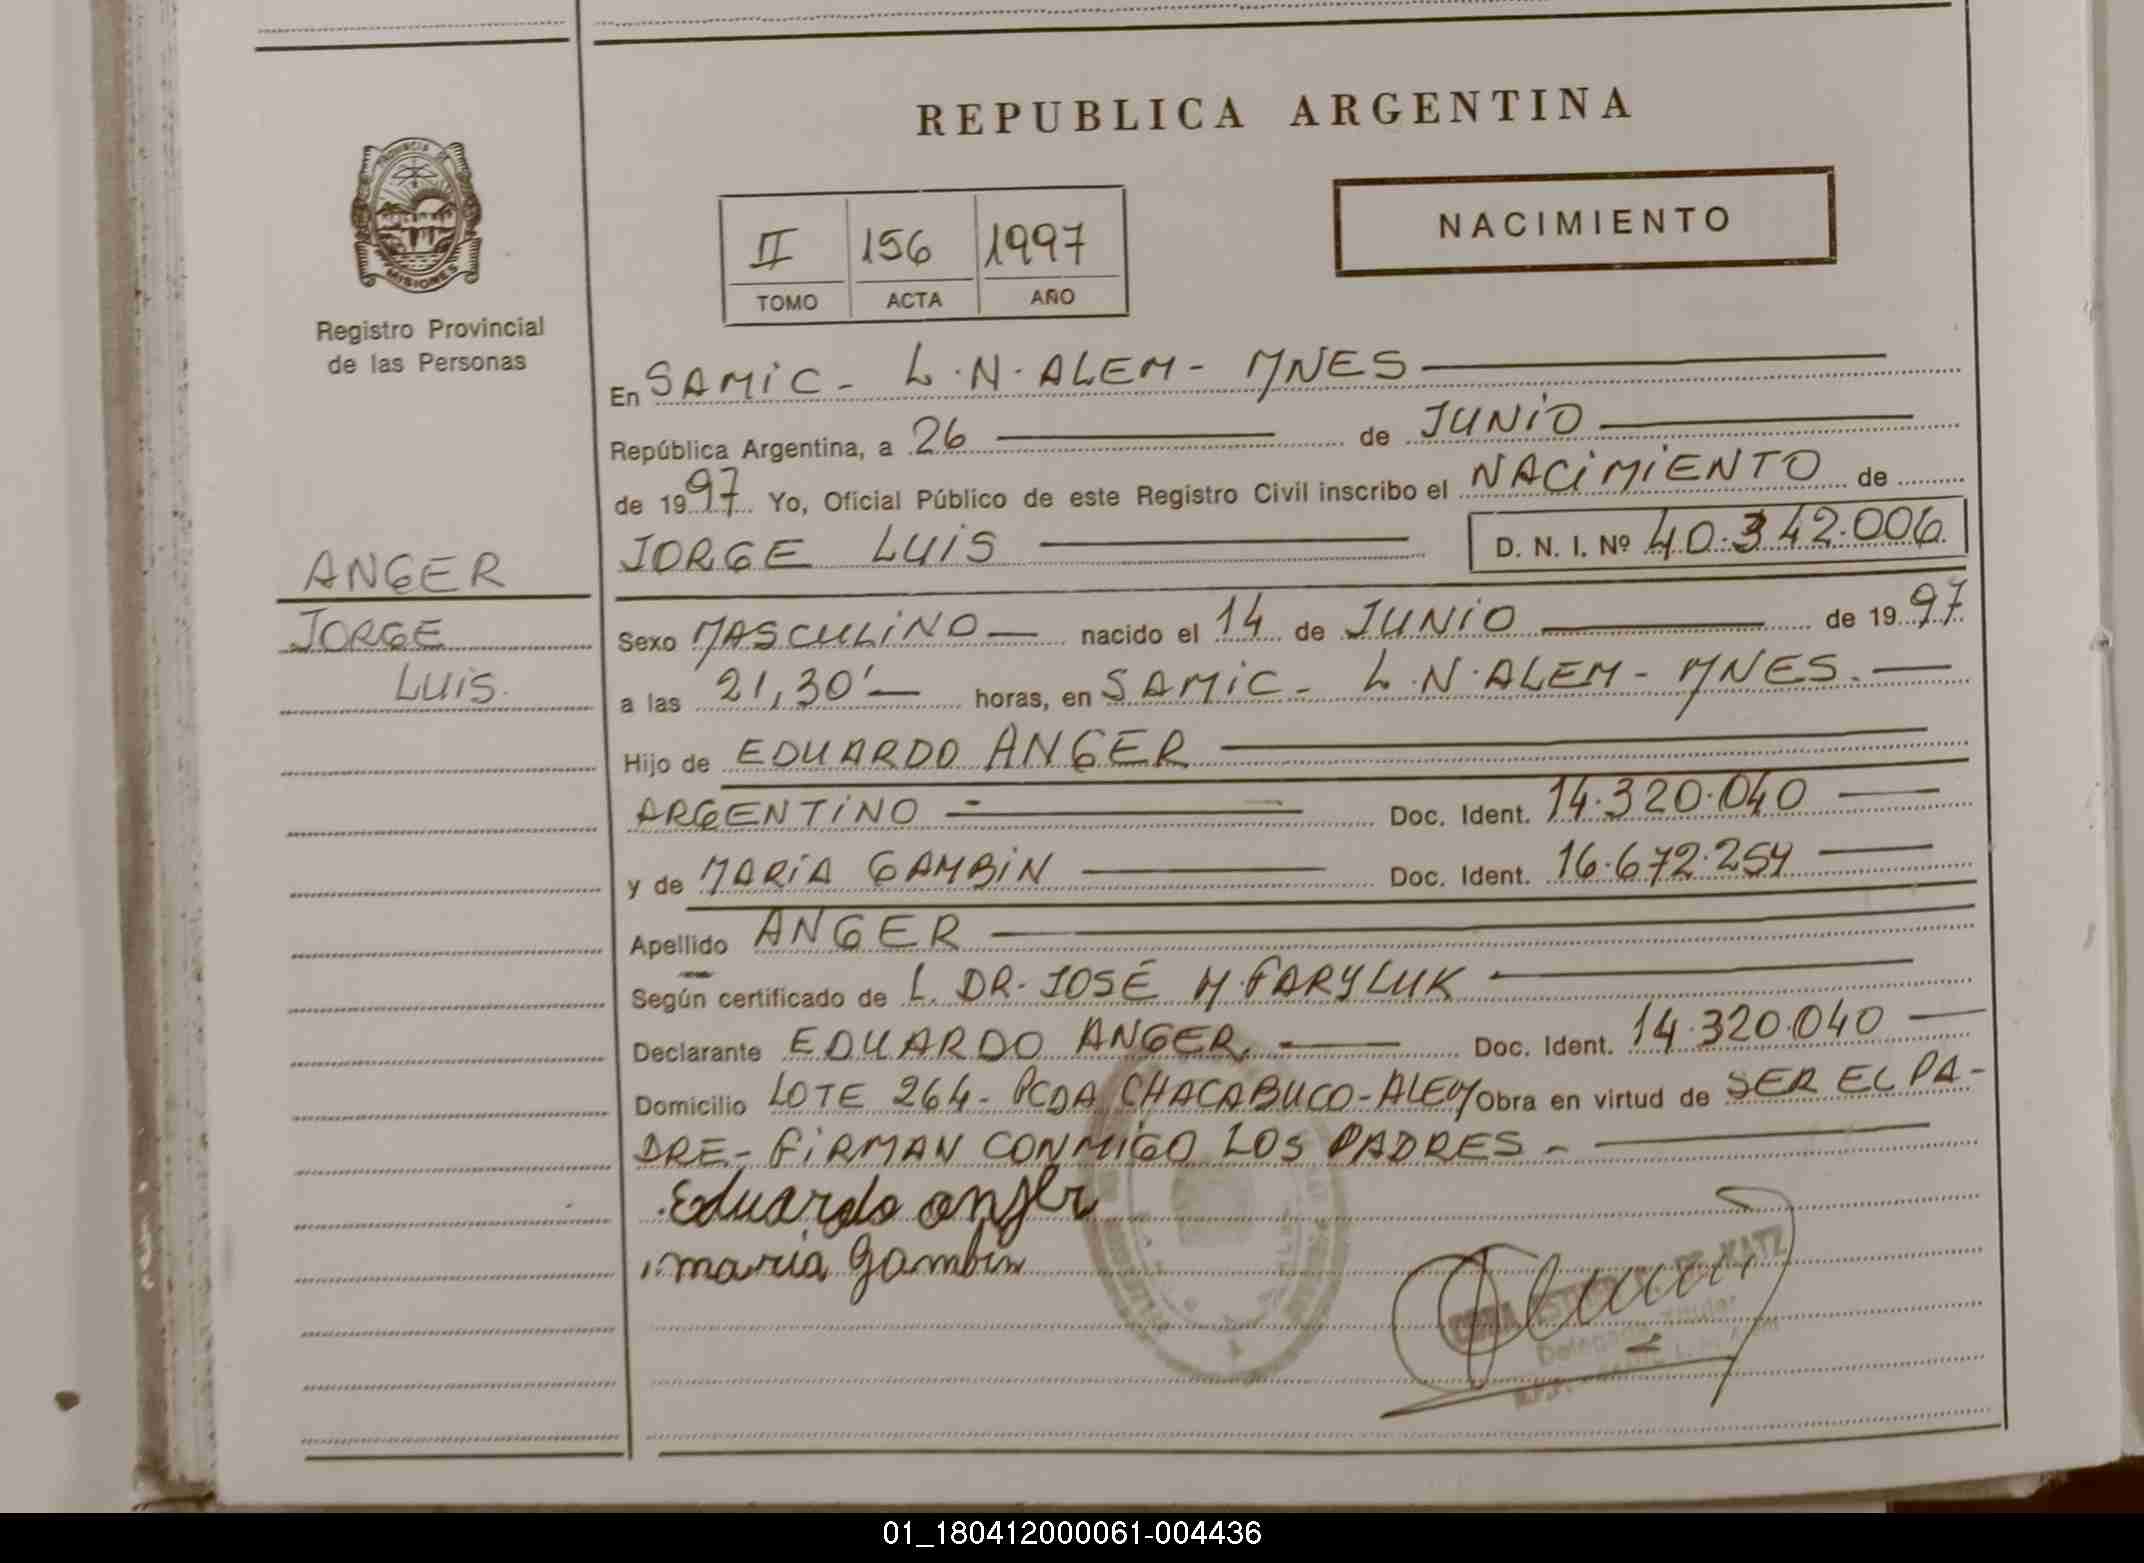 REPUBLICA ARGENTINA
PROVINCIA DE
MISIONES
Registro Provincial
de las Personas
NACIMIENTO
II 156 1997
TOMO ACTA AÑO
En SAMIC - L.N. ALEM - MNES
República Argentina, a 26 de JUNIO
de 1997 Yo, Oficial Público de este Registro Civil inscribo el NACIMIENTO de
JORGE LUIS D. N. I. Nº 40.342.006
ANGER
JORGE
LUIS.
Sexo MASCULINO nacido el 14 de JUNIO de 1997
a las 21,30' horas, en SAMIC - L.N. ALEM - MNES.
Hijo de EDUARDO ANGER
ARGENTINO Doc. Ident. 14.320.040
y de MARIA GAMBIN Doc. Ident. 16.672.254
Apellido ANGER
Según certificado de L. DR. JOSÉ M. FARYLUK
Declarante EDUARDO ANGER. Doc. Ident. 14.320.040
Domicilio LOTE 264 - PCDA CHACABUCO - ALEM Obra en virtud de SER EL PA-
DRE - FIRMAN CONMIGO LOS PADRES -
Eduardo anger
maria gambin
DE KATZ
Titular
01_180412000061-004436